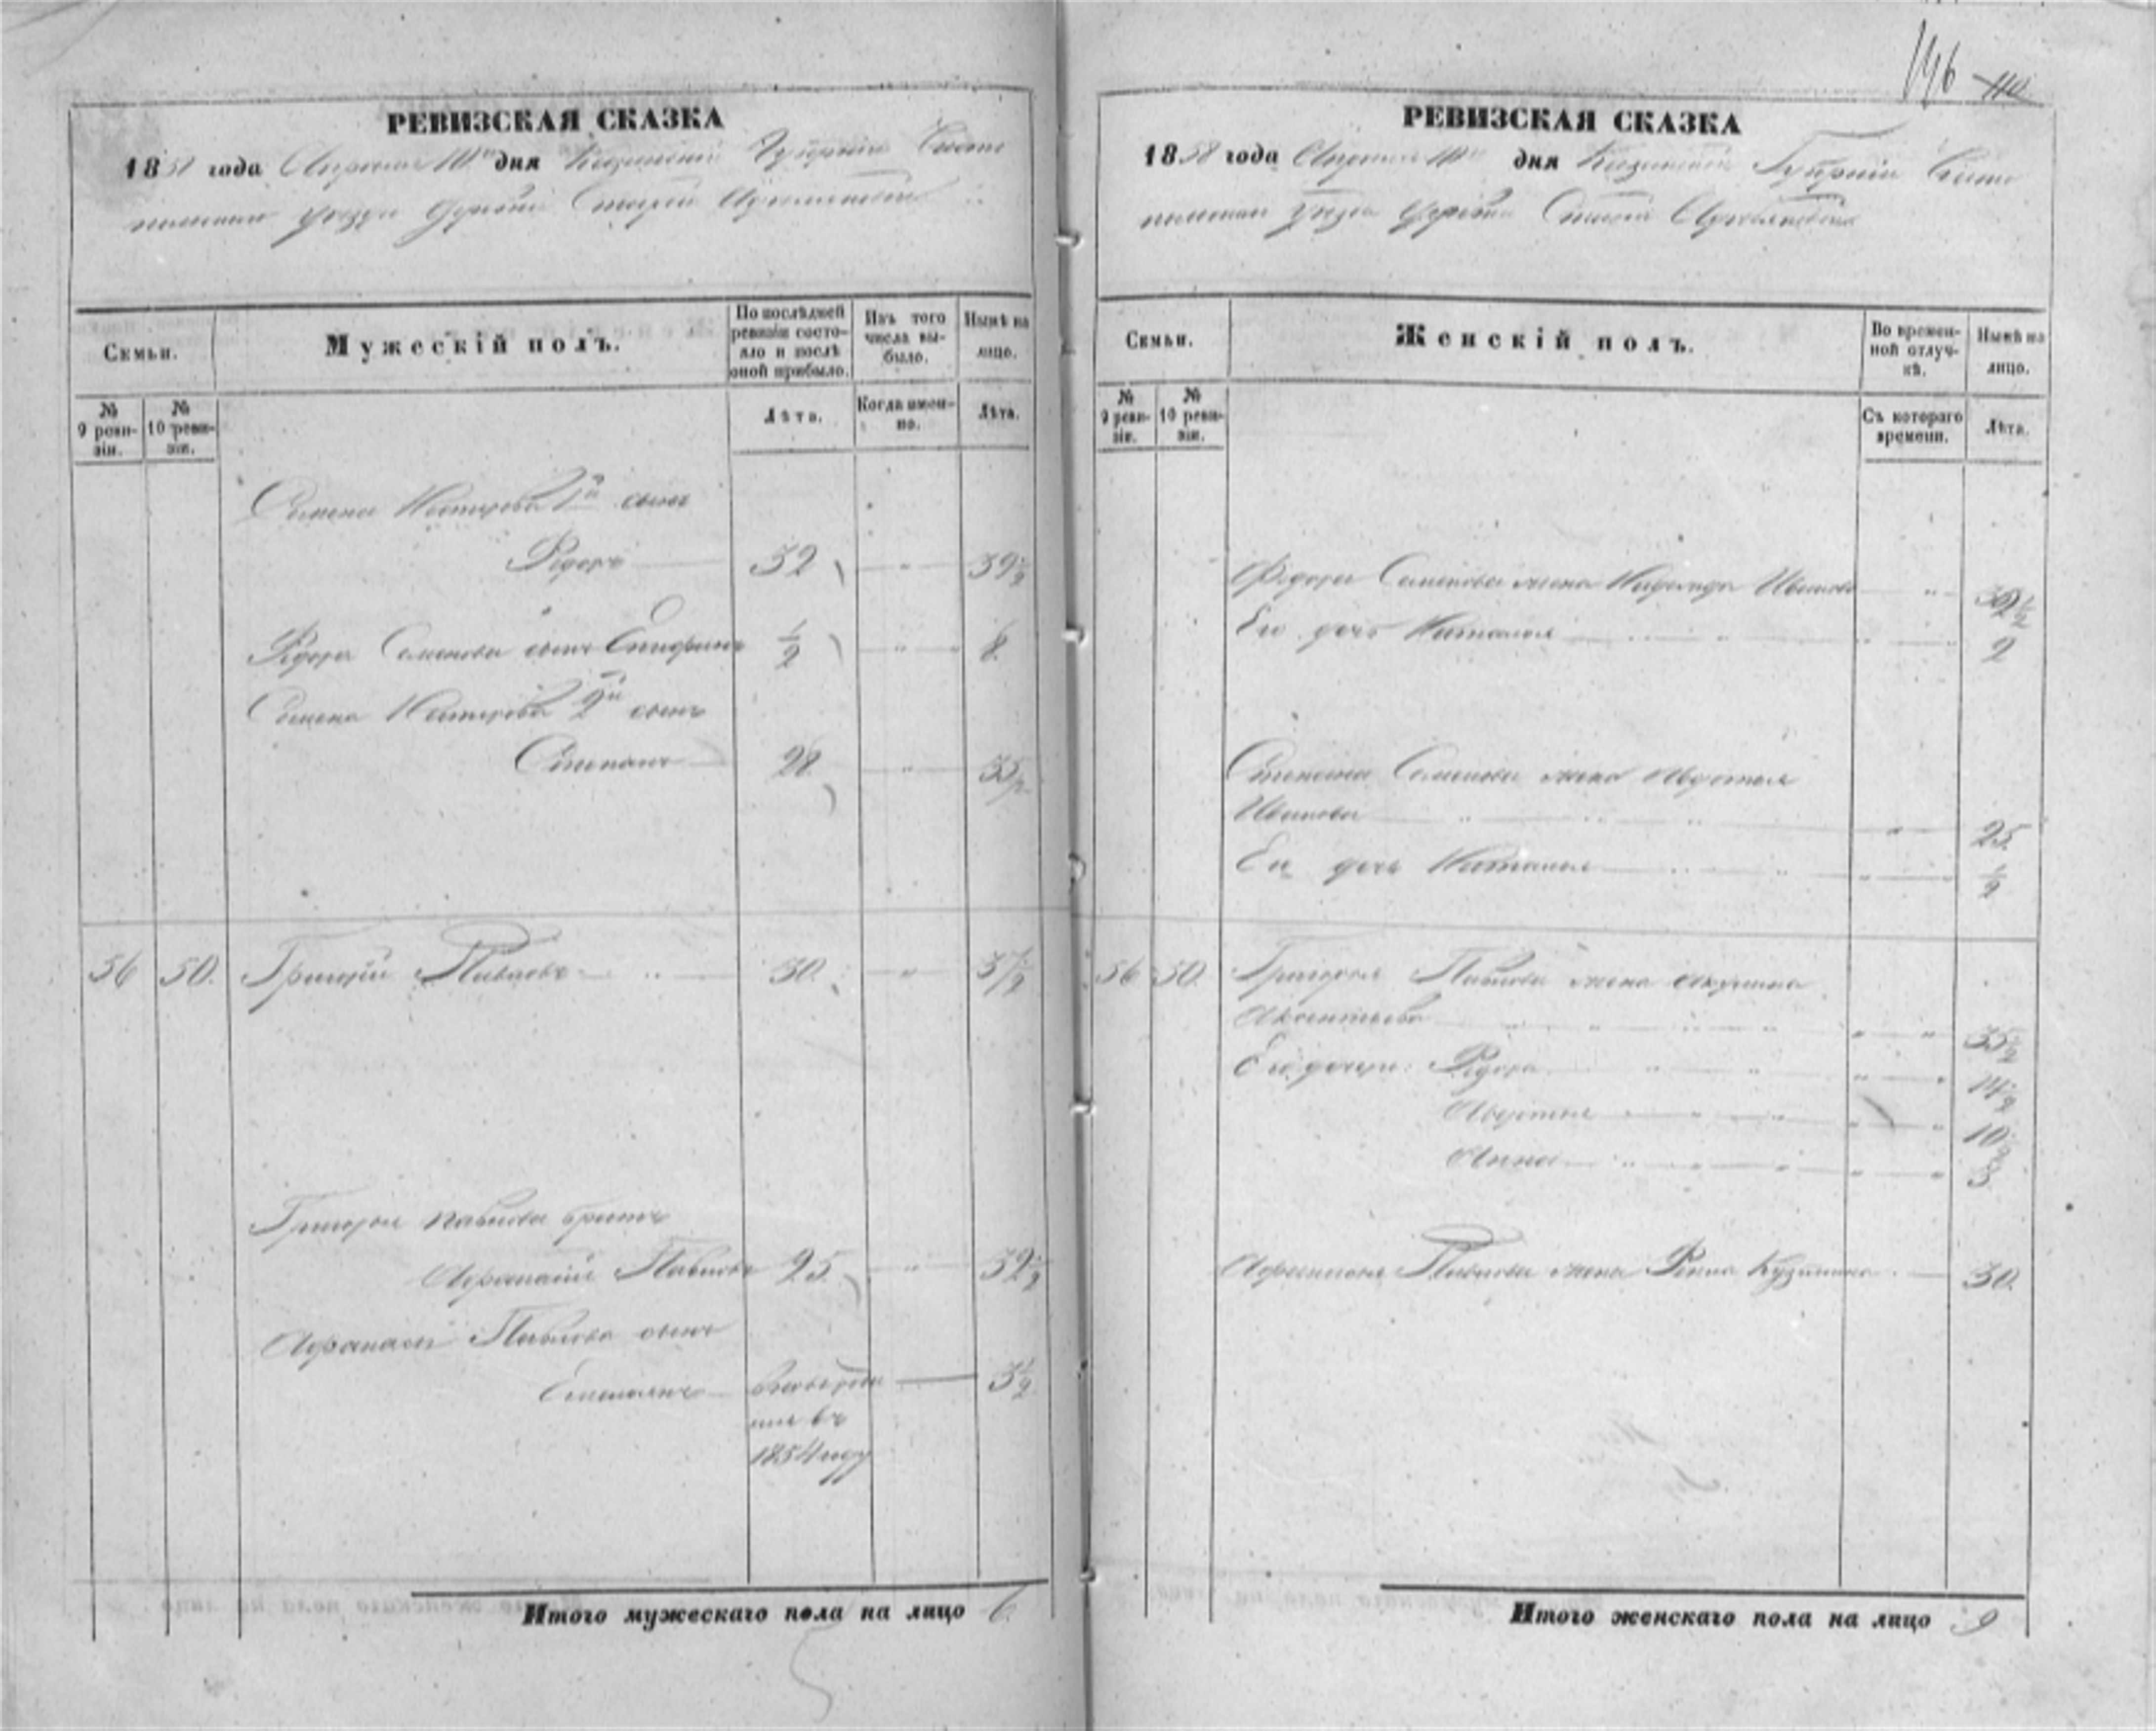 146 110
РЕВИЗСКАЯ СКАЗКА
1858 года Апреля 10го дня Казанской Губернии Чисто
польскаго уезда деревни Старой
Семьи.
Мужескій полъ.
По послѣдней ревизіи состояло и послѣ оной прибыло.
Изъ того числа выбыло.
Нынѣ на лицо.
№ 9 ревизіи.
№ 10 ревизіи.
Лѣта.
Когда именно.
Лѣта.
Семена Нестерова 1й сынъ
Федоръ 32 " 39½
Федора Семенова сынъ ½ " 8
Семена Нестерова 2й сынъ
Степанъ 28 " 35½
56 50. Григорій Павловъ 30. " 37½
Григорья Павлова братъ
Афанасій Павловъ 25. " 32½
Афанасья Павлова сынъ
Емельянъ вновь рож 3½
ден въ
1854 году
Итого мужескаго пола на лицо 6.
РЕВИЗСКАЯ СКАЗКА
1858 года Апреля 10го дня Казанской Губерніи Чисто
польскаго Уезда деревни Старой
Семьи.
Женскій полъ.
Во временной отлучкѣ.
Нынѣ на лицо.
№ 9 ревизіи.
№ 10 ревизіи.
Съ котораго времени.
Лѣта.
Федора Семенова жена Надежда Иванова "
Его дочь Наталья " 2
Степана Семенова жена Авдотья
Иванова " 25.
Ея дочь Наталья " ½
56 50. Григорья Павлова жена Акулина
" " 35½
Его дочери: Федора " " 14½
Авдотья " " 10½
Анна " " 5
Афанасья Павлова жена Фекла Кузьмина 30.
Итого женскаго пола на лицо 9